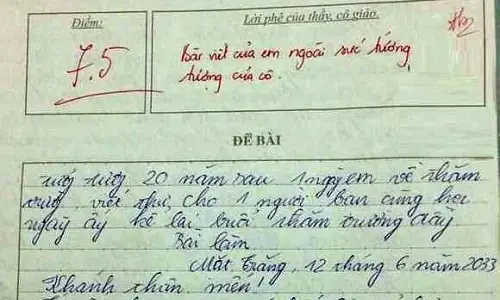 Điểm:
7.5
Lời phê của thầy, cô giáo.
Bài viết của em ngoài sức tưởng
tượng của cô.
ĐỀ BÀI
20 năm sau 1 ngày em về thăm
trường. viết thư cho 1 người bạn cùng học
ngày ấy kể lại buổi thăm trường đầy
Bài làm
Mặt Trăng, 12 tháng 6 năm 2033
Khánh thân mến!